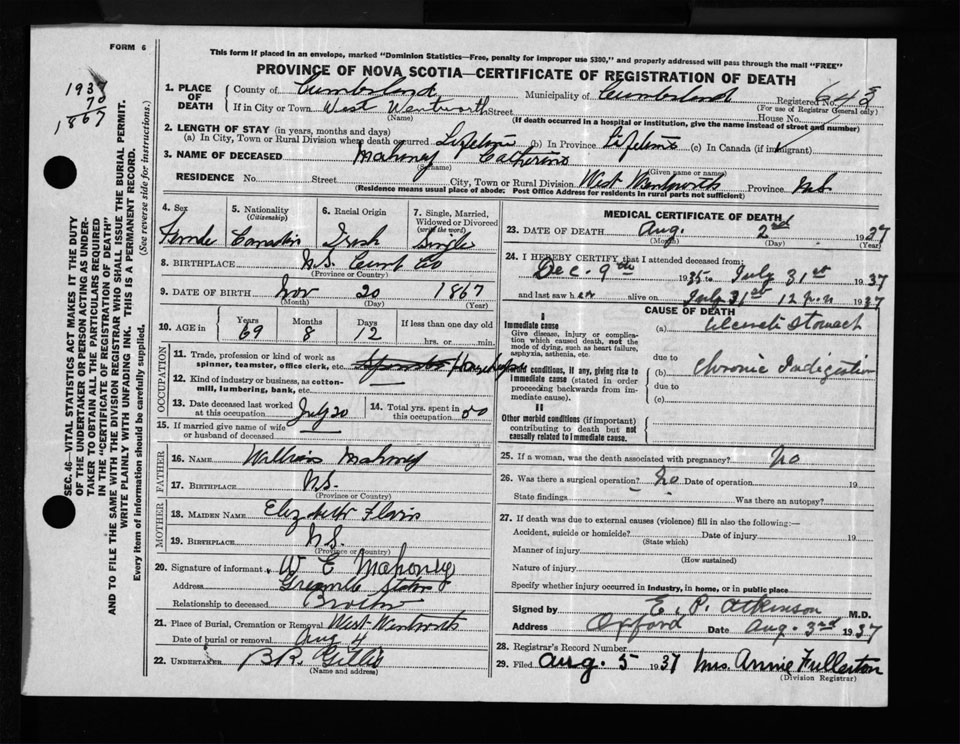 FORM 6
This form if placed in an envelope, marked "Dominion Statistics—Free, penalty for improper use $300," and properly addressed will pass through the mail "FREE"
PROVINCE OF NOVA SCOTIA—CERTIFICATE OF REGISTRATION OF DEATH
1937
70
1867
1. PLACE OF DEATH
County of Cumberland Municipality of Cumberland Registered No.
(For use of Registrar General only)
If in City or Town West Wentworth Street House No.
(Name) (If death occurred in a hospital or institution, give the name instead of street and number)
2. LENGTH OF STAY (in years, months and days)
(a) In City, Town or Rural Division where death occurred Lifetime (b) In Province Lifetime (c) In Canada (if immigrant)
3. NAME OF DECEASED Mahoney Catherine
(Surname) (Given name or names)
RESIDENCE No. Street City, Town or Rural Division West Wentworth Province N.S.
(Residence means usual place of abode: Post Office Address for residents in rural parts not sufficient)
4. Sex Female
5. Nationality (Citizenship) Canadian
6. Racial Origin Irish
7. Single, Married, Widowed or Divorced (write the word) Single
8. BIRTHPLACE N.S. Cumb Co
(Province or Country)
9. DATE OF BIRTH Nov 20 1867
(Month) (Day) (Year)
10. AGE in Years 69 Months 8 Days 12 If less than one day old
hrs. or min.
OCCUPATION
11. Trade, profession or kind of work as spinner, teamster, office clerk, etc. Spinster Housekeeper
12. Kind of industry or business, as cotton-mill, lumbering, bank, etc.
13. Date deceased last worked at this occupation July 20
14. Total yrs. spent in this occupation 50
15. If married give name of wife or husband of deceased
FATHER
16. NAME William Mahoney
17. BIRTHPLACE N.S.
(Province or Country)
MOTHER
18. MAIDEN NAME Elizabeth
19. BIRTHPLACE N.S.
(Province or Country)
20. Signature of informant W E Mahoney
Address Greenville Station
Relationship to deceased Brother
21. Place of Burial, Cremation or Removal West Wentworth
Date of burial or removal Aug 4
22. UNDERTAKER B.R. Gillis
(Name and address)
MEDICAL CERTIFICATE OF DEATH
23. DATE OF DEATH Aug. 2nd 1937
(Month) (Day) (Year)
24. I HEREBY CERTIFY that I attended deceased from:
Dec. 9th 1935 to July 31st 1937
and last saw her alive on July 31st 12 p.m 1937
CAUSE OF DEATH
I
Immediate cause
Give disease, injury or complication which caused death, not the mode of dying, such as heart failure, asphyxia, asthenia, etc.
(a) Stomach
due to
Morbid conditions, if any, giving rise to immediate cause (stated in order proceeding backwards from immediate cause).
(b) Chronic Indigestion
due to
(c)
II
Other morbid conditions (if important) contributing to death but not causally related to immediate cause.
25. If a woman, was the death associated with pregnancy? No
26. Was there a surgical operation? No Date of operation 19
State findings Was there an autopsy?
27. If death was due to external causes (violence) fill in also the following:—
Accident, suicide or homicide? Date of injury 19
(State which)
Manner of injury
(How sustained)
Nature of injury
Specify whether injury occurred in industry, in home, or in public place
Signed by E. P. Atkinson M.D.
Address Oxford Date Aug. 3rd 1937
28. Registrar's Record Number
29. Filed Aug. 5 1937 Mrs. Annie Fullerton
(Division Registrar)
SEC. 46—VITAL STATISTICS ACT MAKES IT THE DUTY
OF THE UNDERTAKER OR PERSON ACTING AS UNDER-
TAKER TO OBTAIN ALL THE PARTICULARS REQUIRED
IN THE "CERTIFICATE OF REGISTRATION OF DEATH"
AND TO FILE THE SAME WITH THE DIVISION REGISTRAR WHO SHALL ISSUE THE BURIAL PERMIT.
WRITE PLAINLY WITH UNFADING INK. THIS IS A PERMANENT RECORD.
Every item of information should be carefully supplied. (See reverse side for instructions.)